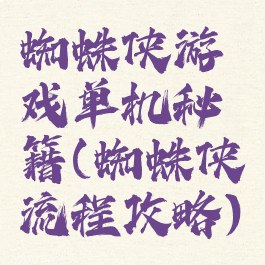 蜘蛛侠游
戏单机秘
籍(蜘蛛侠
流程攻略)